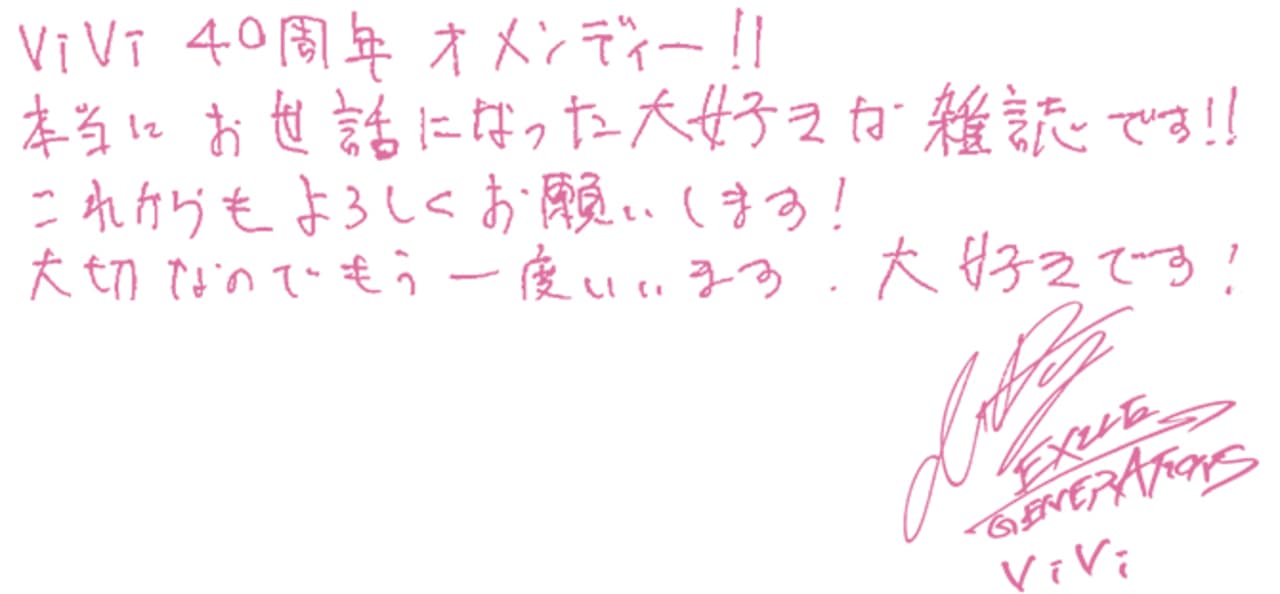 ViVi 40周年 オメンディー!!
本当に お世話になった大好きな 雑誌です!!
これからもよろしくお願いします!
大切なのでもう一度いいます. 大好きです!
EXILE
GENERATIONS
ViVi